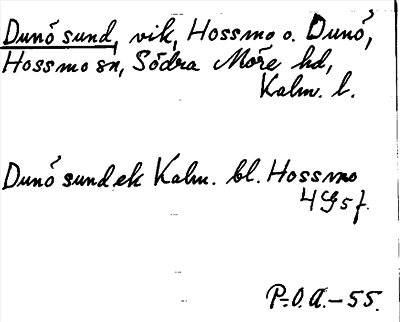 Dunö sund, vik, Hossmo o. Dunö,
Hossmo sn, Södra Möre hd,
Kalm. l.
Dunö sund ek Kalm. bl. Hossmo
4G5f.
P.O.A.-55.